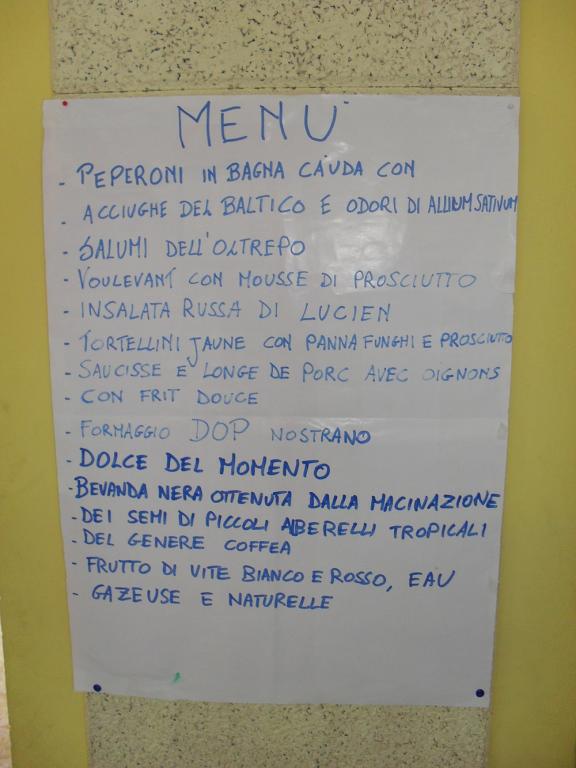 MENU'
- PEPERONI IN BAGNA CAUDA CON
- ACCIUGHE DEL BALTICO E ODORI DI ALLIUM SATIVUM
- SALUMI DELL'OLTREPO
- VOULEVANT CON MOUSSE DI PROSCIUTTO
- INSALATA RUSSA DI LUCIEN
- TORTELLINI JAUNE CON PANNA FUNGHI E PROSCIUTTO
- SAUCISSE E LONGE DE PORC AVEC OIGNONS
- CON FRIT DOUCE
- FORMAGGIO DOP NOSTRANO
- DOLCE DEL MOMENTO
- BEVANDA NERA OTTENUTA DALLA MACINAZIONE
- DEI SEMI DI PICCOLI ALBERELLI TROPICALI
- DEL GENERE COFFEA
- FRUTTO DI VITE BIANCO E ROSSO, EAU
- GAZEUSE E NATURELLE